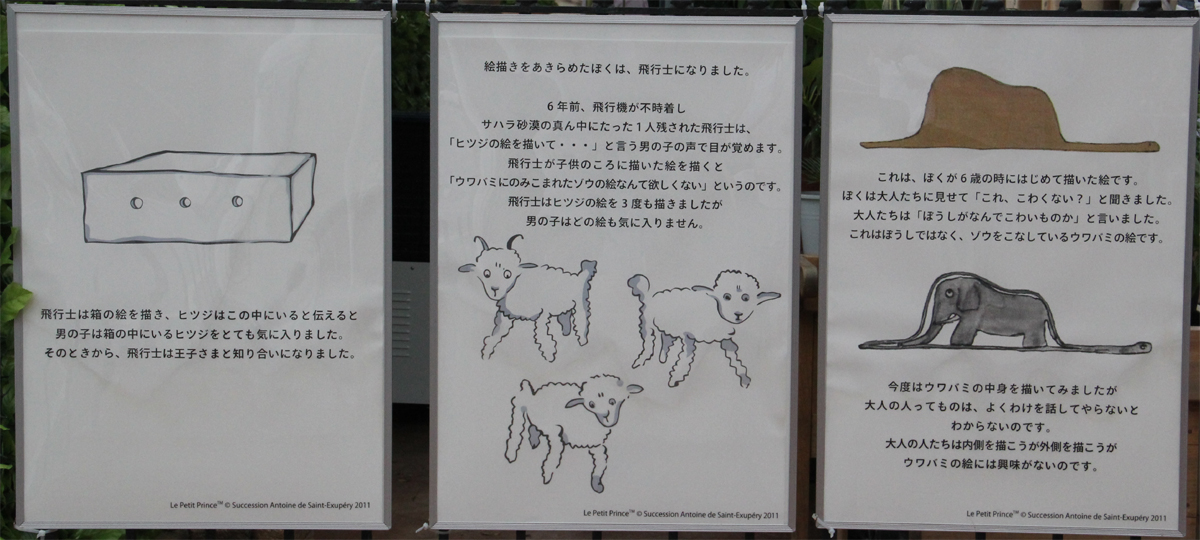 これは、ぼくが6歳の時にはじめて描いた絵です。
ぼくは大人たちに見せて「これ、こわくない？」と聞きました。
大人たちは「ぼうしがなんでこわいものか」と言いました。
これはぼうしではなく、ゾウをこなしているウワバミの絵です。
今度はウワバミの中身を描いてみましたが
大人の人ってものは、よくわけを話してやらないと
わからないのです。
大人の人たちは内側を描こうが外側を描こうが
ウワバミの絵には興味がないのです。
Le Petit Prince™ © Succession Antoine de Saint-Exupéry 2011
絵描きをあきらめたぼくは、飛行士になりました。
6年前、飛行機が不時着し
サハラ砂漠の真ん中にたった1人残された飛行士は、
「ヒツジの絵を描いて・・・」と言う男の子の声で目が覚めます。
飛行士が子供のころに描いた絵を描くと
「ウワバミにのみこまれたゾウの絵なんて欲しくない」というのです。
飛行士はヒツジの絵を3度も描きましたが
男の子はどの絵も気に入りません。
Le Petit Prince™ © Succession Antoine de Saint-Exupéry 2011
飛行士は箱の絵を描き、ヒツジはこの中にいると伝えると
男の子は箱の中にいるヒツジをとても気に入りました。
そのときから、飛行士は王子さまと知り合いになりました。
Le Petit Prince™ © Succession Antoine de Saint-Exupéry 2011